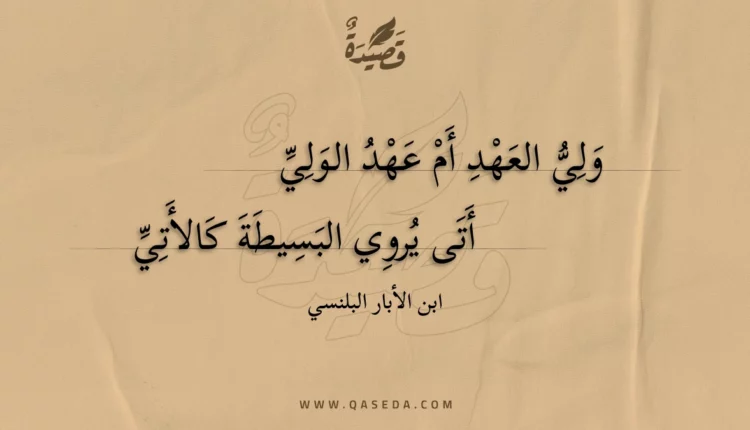 قَصِيدَةٌ
وَلِيُّ العَهْدِ أَمْ عَهْدُ الوَلِيِّ
أَتَى يُروِي البَسِيطَةَ كَالأَتِيِّ
ابن الأبار البلنسي
WWW.QASEDA.COM